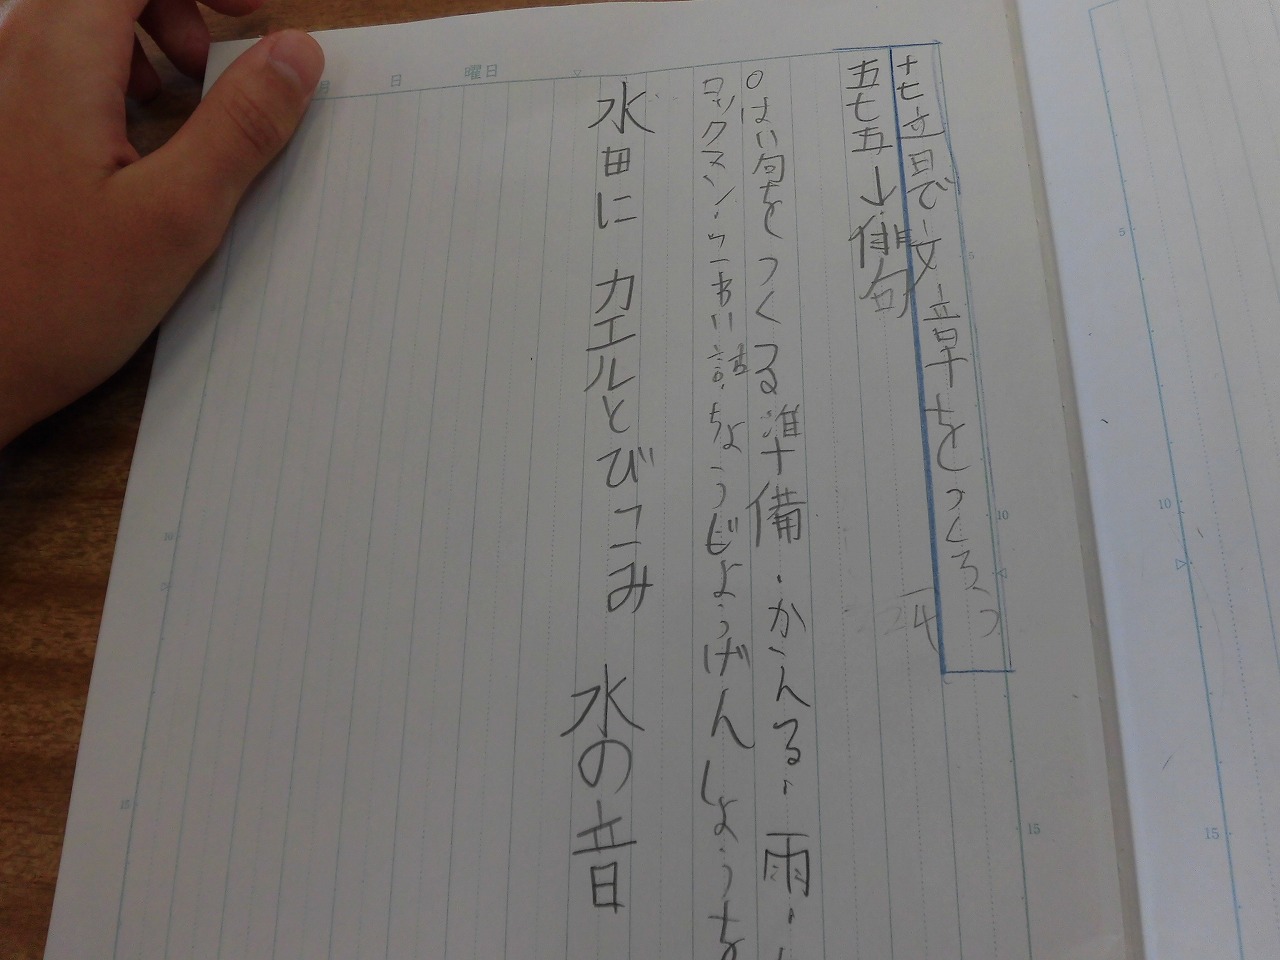 十七音で文章をつくろう
五七五→俳句
〇はい句をつくる準備・かえる・雨・
ロックマン・こわい話・ちょうじょうげんしょうを
水田に カエルとびこみ 水の音
月 日 曜日
5
10
15
10
15
5
10
15